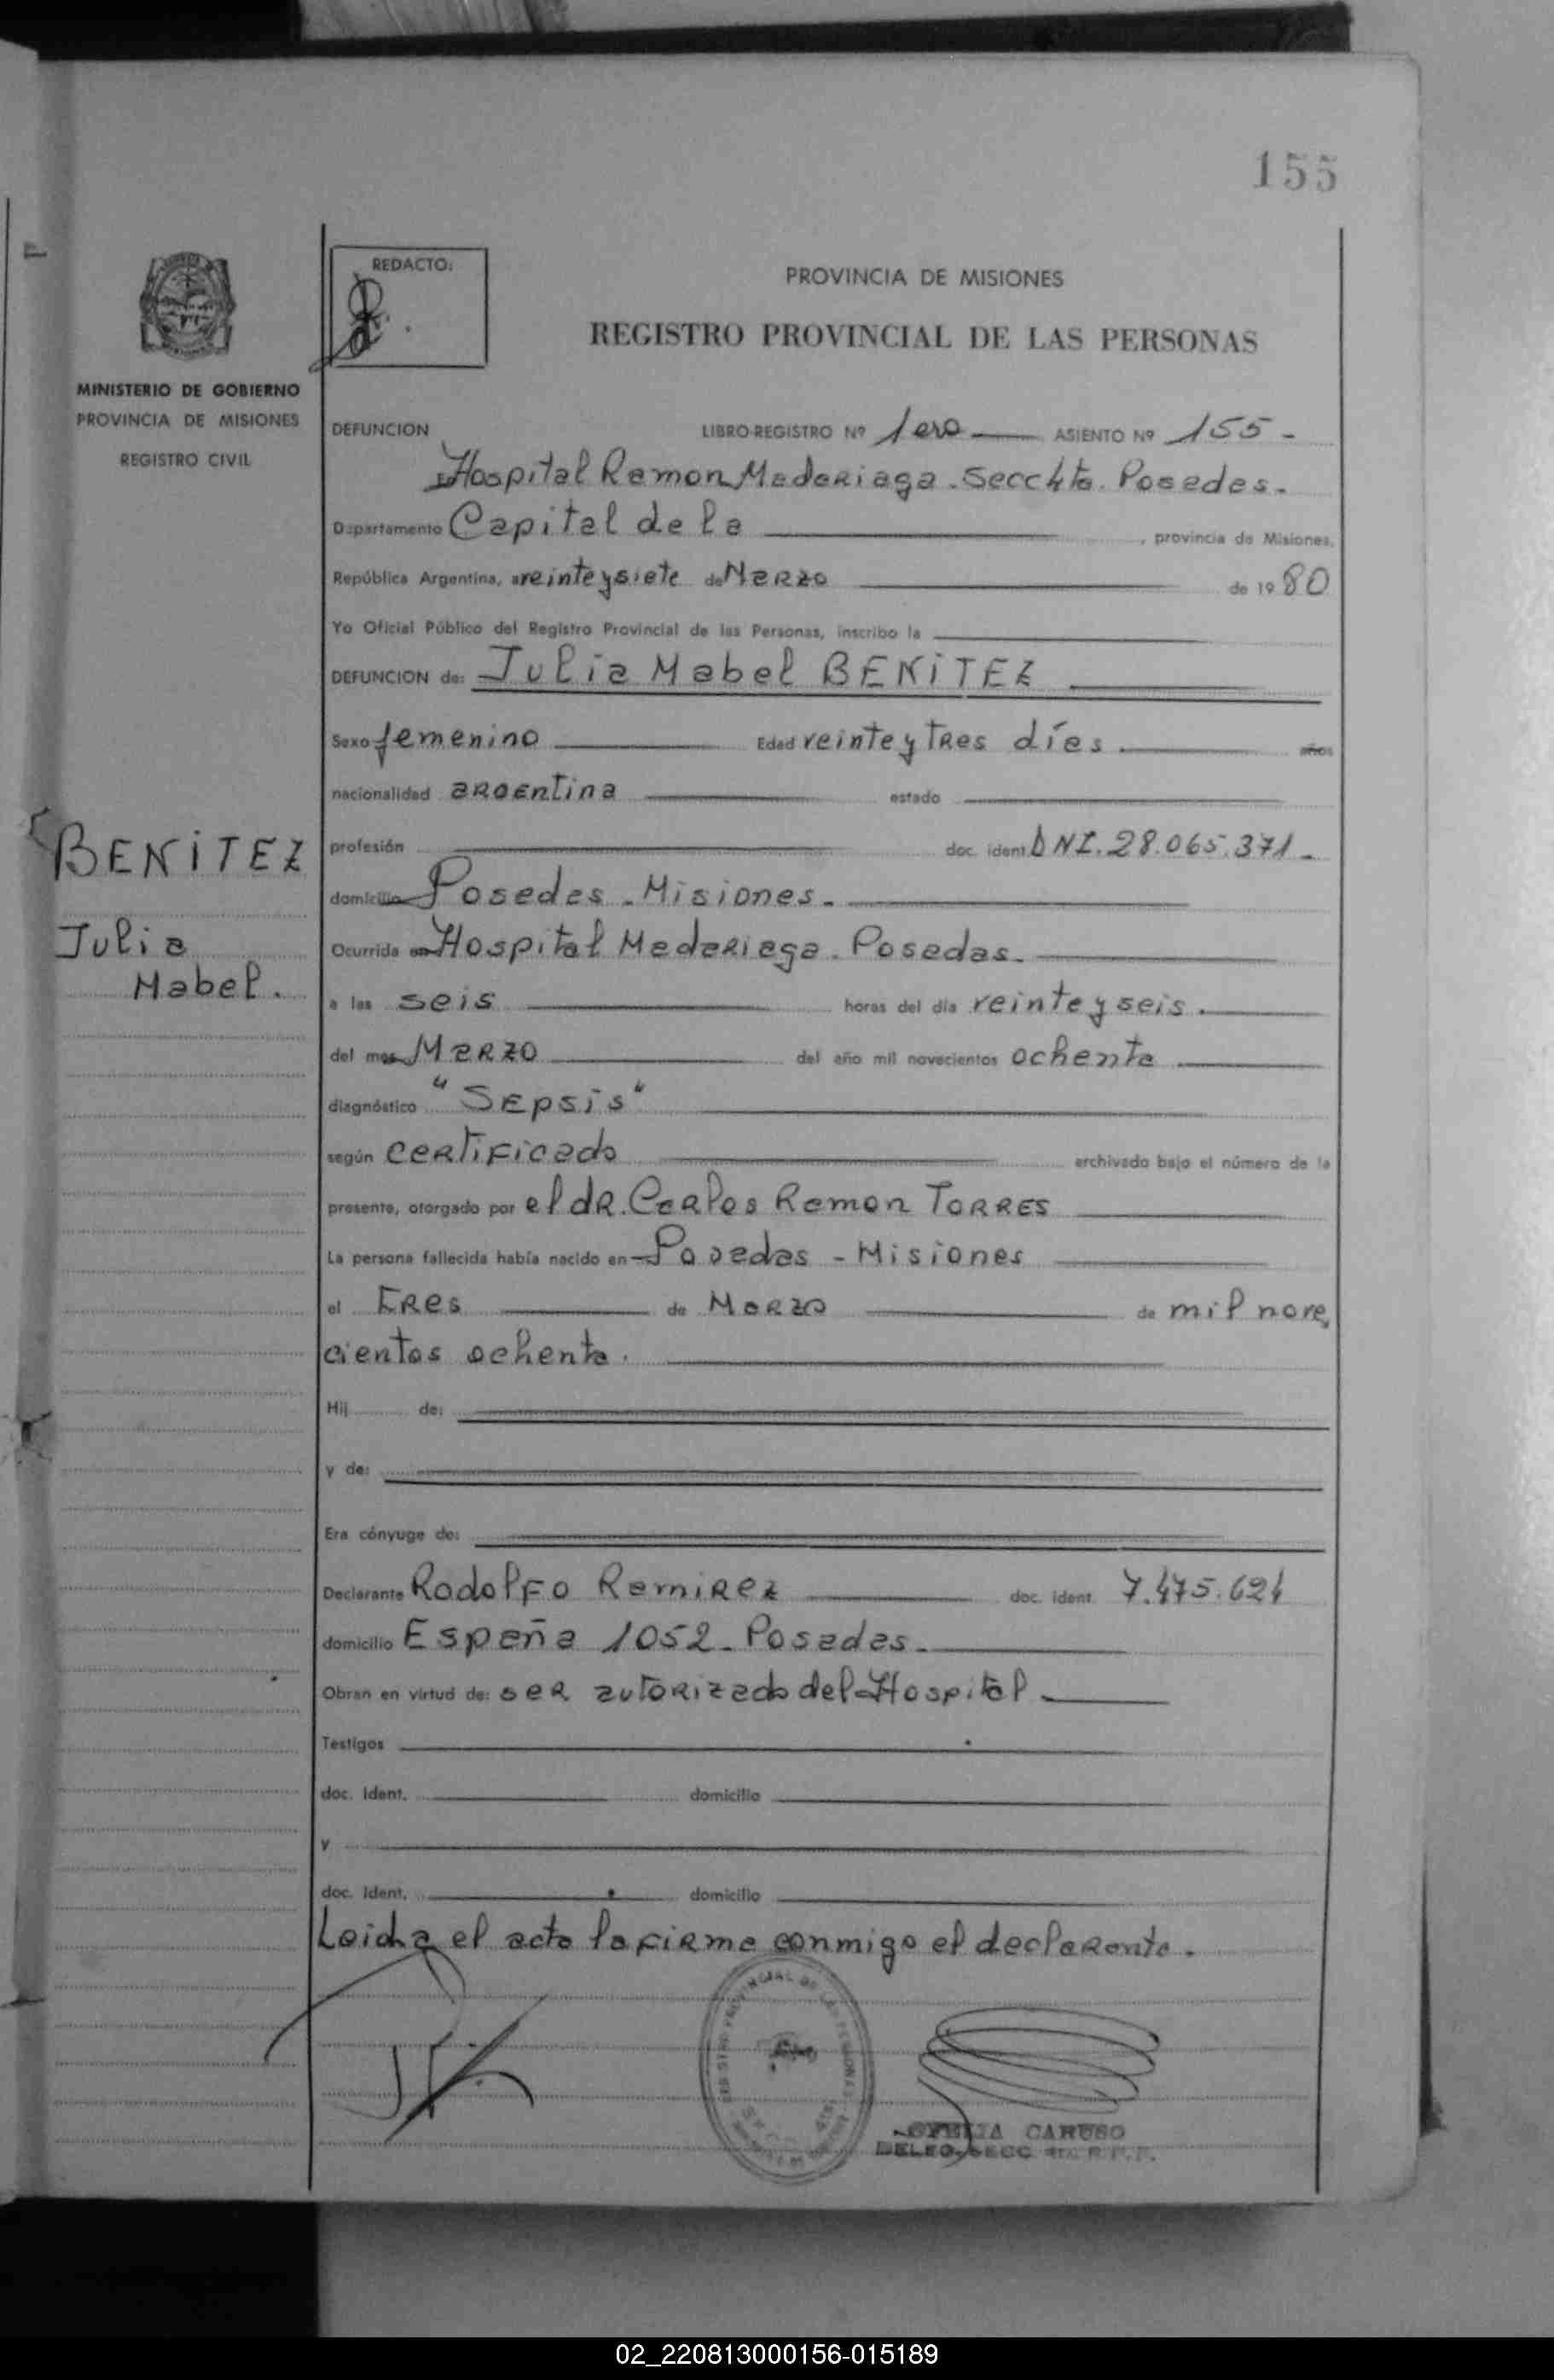 155
REDACTO:
PROVINCIA DE MISIONES
REGISTRO PROVINCIAL DE LAS PERSONAS
MINISTERIO DE GOBIERNO
PROVINCIA DE MISIONES
REGISTRO CIVIL
DEFUNCION LIBRO-REGISTRO Nº 1ero ASIENTO Nº 155 -
Hospital Ramon Madariaga. Secc 4ta. Posadas.
Departamento Capital de la , provincia de Misiones,
República Argentina, a veinte y siete de Marzo de 19 80
Yo Oficial Público del Registro Provincial de las Personas, inscribo la
DEFUNCION de: Julia Mabel BENITEZ
Sexo femenino Edad veinte y tres días. años
nacionalidad argentina estado
profesión doc. ident. DNI. 28.065.371.
domicilio Posadas - Misiones.
Ocurrida en Hospital Madariaga. Posadas.
a las seis horas del día veinte y seis.
del mes Marzo del año mil novecientos ochenta
diagnóstico "Sepsis"
según certificado archivado bajo el número de la
presente, otorgado por el dr. Carlos Ramon TORRES
La persona fallecida había nacido en Posadas - Misiones
el tres de Marzo de mil nove
cientos ochenta.
Hij de:
y de:
Era cónyuge de:
Declarante Rodolfo Ramirez doc. ident. 7.475.624
domicilio España 1052. Posadas.
Obran en virtud de: ser autorizado del Hospital.
Testigos
doc. Ident. domicilio
y
doc. Ident. domicilio
Leida el acta la firma conmigo el declarante.
BENITEZ
Julia
Mabel.
CARUSO
02_220813000156-015189